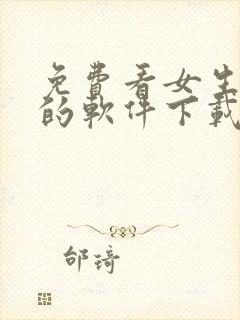 免費看女生
的軟件下載
邰琦